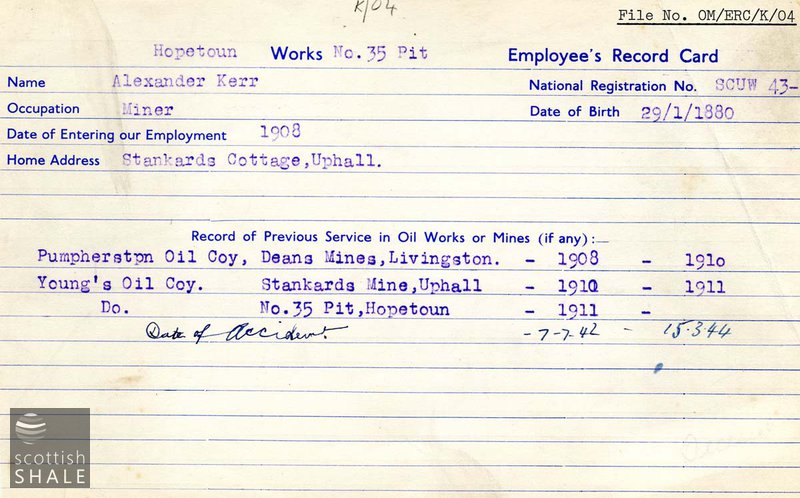 K/04
File No. OM/ERC/K/04
Hopetoun Works No.35 Pit Employee's Record Card
Name Alexander Kerr National Registration No. SCUW 43-
Occupation Miner Date of Birth 29/1/1880
Date of Entering our Employment 1908
Home Address Stankards Cottage,Uphall.
Record of Previous Service in Oil Works or Mines (if any):—
Pumpherstpn Oil Coy, Deans Mines,Livingston. - 1908 - 1910
Young's Oil Coy. Stankards Mine,Uphall - 1910 - 1911
Do. No.35 Pit,Hopetoun - 1911 -
Date of Accident. - 7-7-42 - 15.3.44
scottish
SHALE